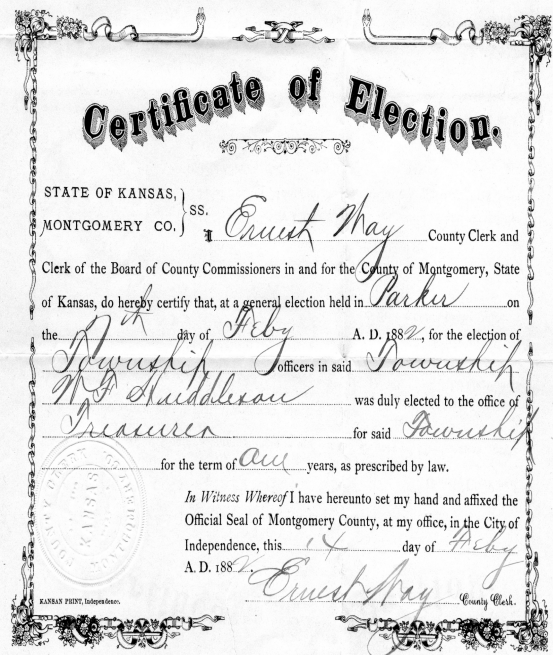 Certificate of Election.
STATE OF KANSAS,
MONTGOMERY CO.
SS.
I Ernest Way County Clerk and
Clerk of the Board of County Commissioners in and for the County of Montgomery, State
of Kansas, do hereby certify that, at a general election held in Parker on
the 7th day of Feby A. D. 1882, for the election of
Township officers in said Township
W F Huddleson was duly elected to the office of
Treasurer for said Township
for the term of one years, as prescribed by law.
In Witness Whereof I have hereunto set my hand and affixed the
Official Seal of Montgomery County, at my office, in the City of
Independence, this 14 day of Feby
A. D. 1882.
Ernest Way County Clerk.
KANSAN PRINT, Independence.
KANSAS